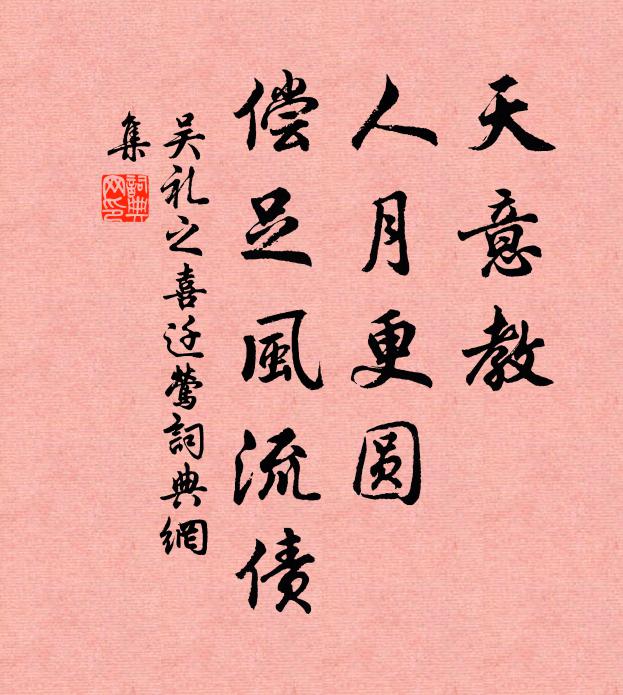 天意教
人月更圆
偿足風流债
吴礼之喜迁鶯詞典網
集
詞典
网印